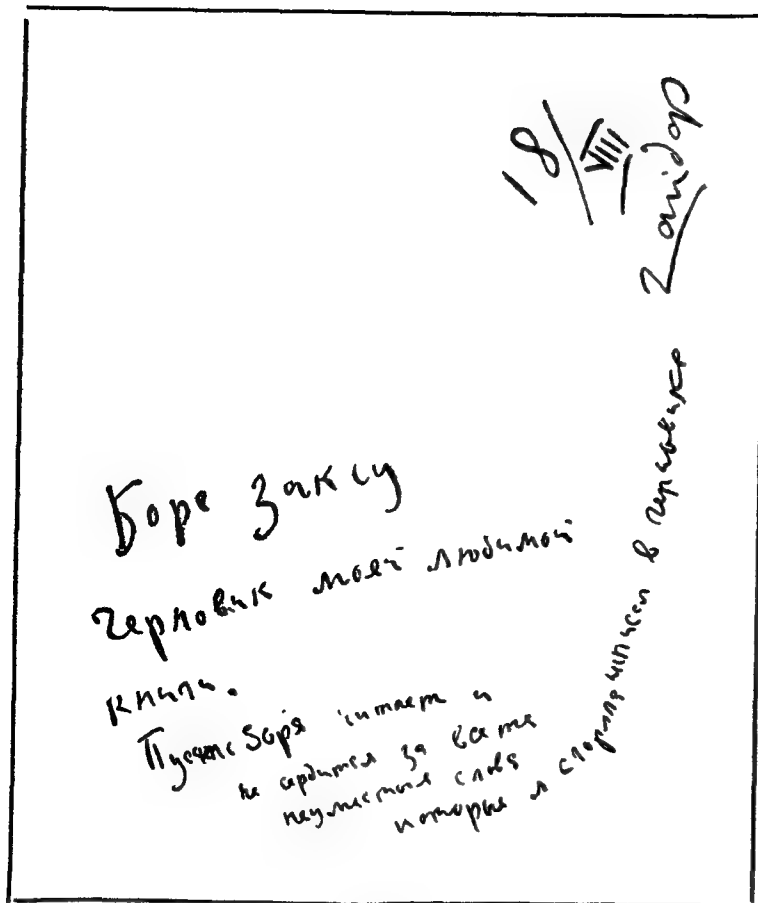 Боре Заксу
черновик моей любимой
книги.
Пусть Боря читает и
не сердится за все те
неуместные слова
которые я сгоряча написал в черновике
18/VIII